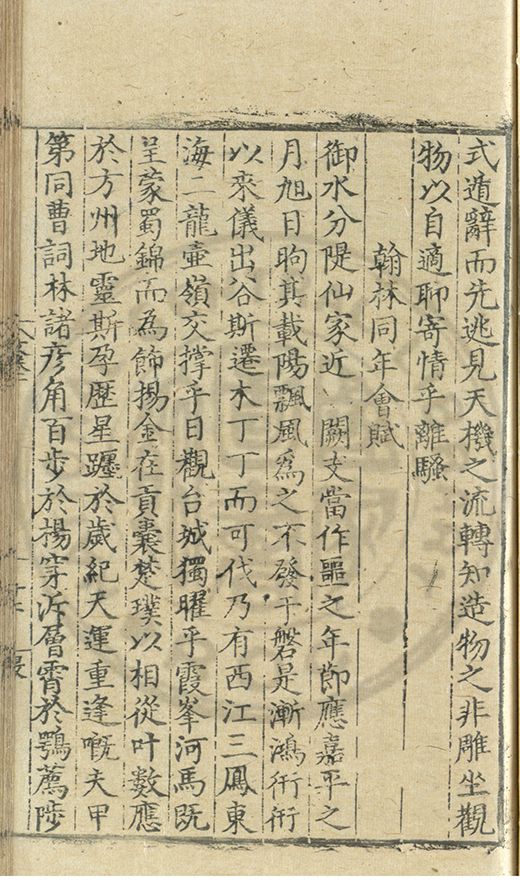 式遁辭而先逃見天機之流轉知造物之非雕坐觀
物以自適聊寄情乎離騷
翰林同年會賦
御水分隄仙家近 闕支當作噩之年節應嘉平之
月旭日昫其載陽飄風為之不發于磐是漸鴻衎衎
以來儀出谷斯遷木丁丁而可伐乃有西江三鳳東
海二龍壷嶺交撑乎日觀台城獨曜乎霞峯河馬旣
呈蒙蜀錦而為飾揚金在貢囊楚璞以相從叶數應
於方州地靈斯孕歷星躔於歲紀天運重逢慨夫甲
第同曹詞林諸彦角百步於楊穿泝層霄於鶚薦陟